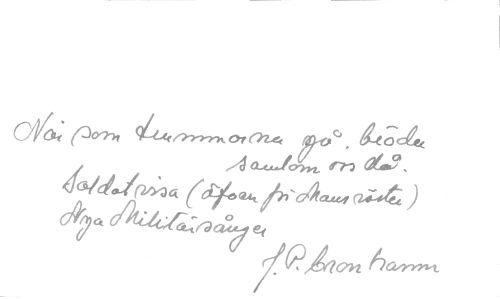 När som trummorna gå, bröder
samlom oss då.
Soldatvisa (äfven för Mansröster)
Nya Militärsånger
J. P. Cronhamm